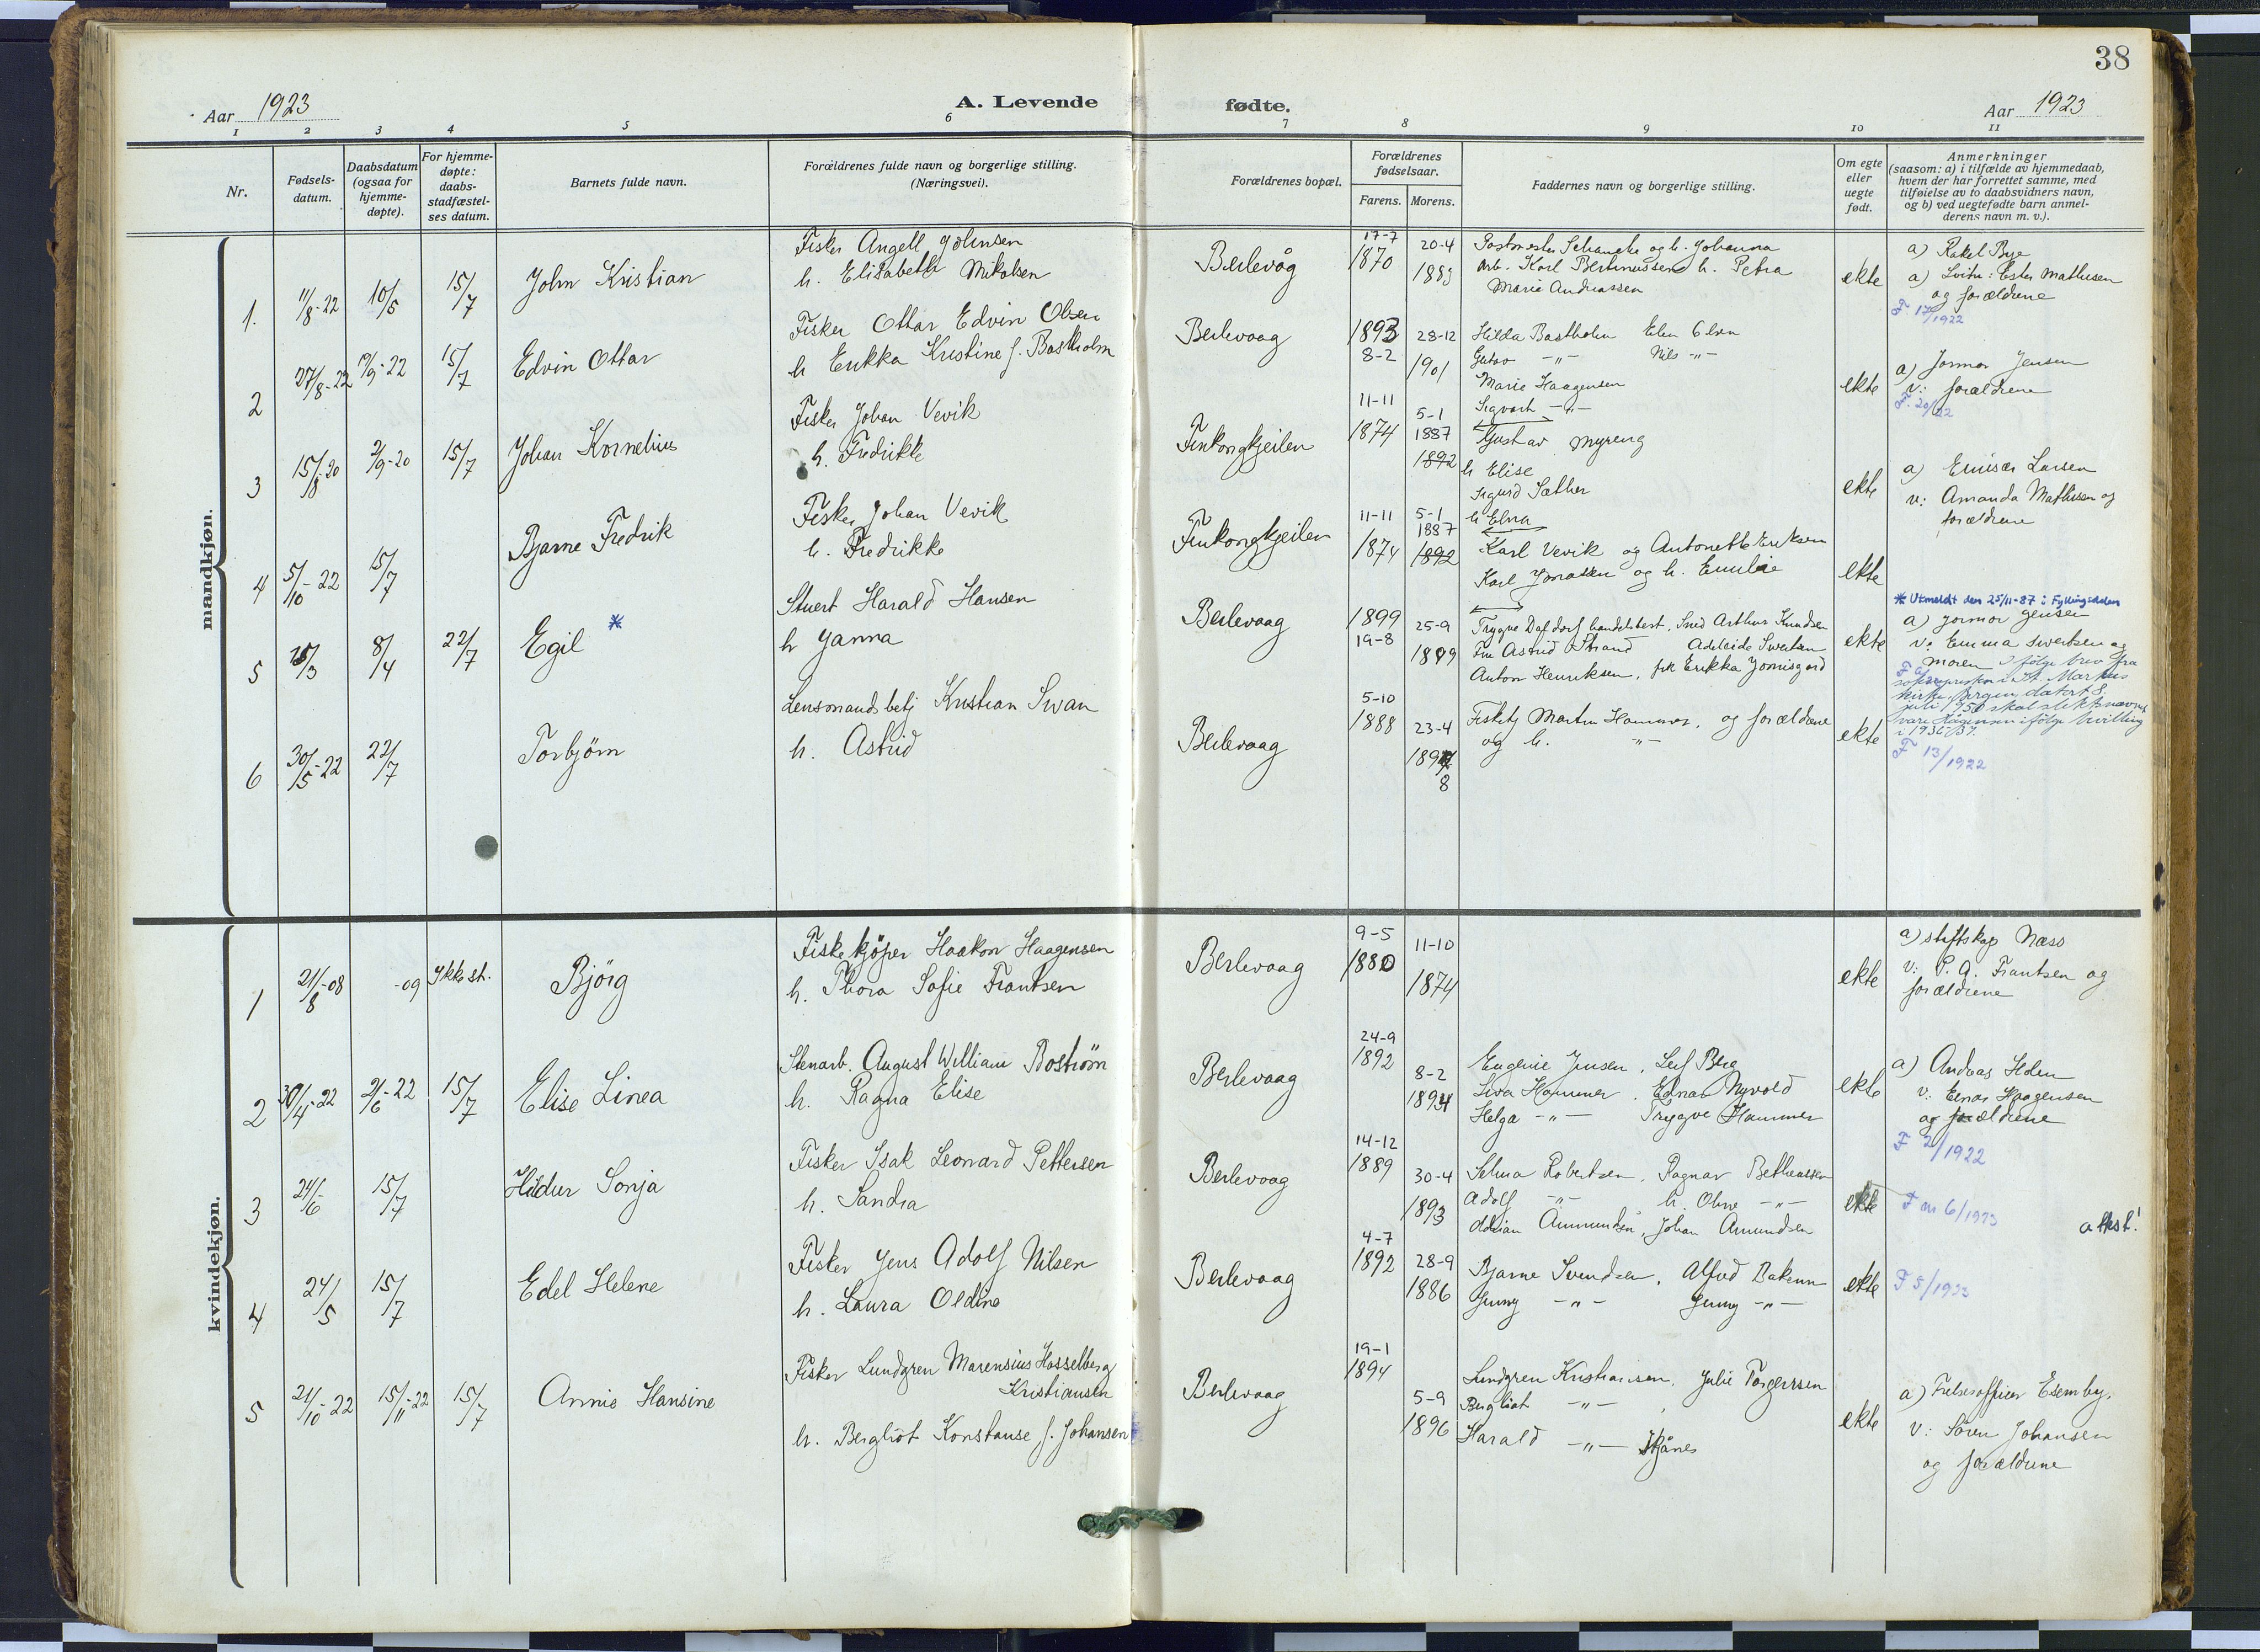 38
Aar 1923
A. Levende fødte.
Aar 1923
1 2 3 4 5 6 7 8 9 10 11
Nr.
Fødsels-
datum.
Daabsdatum
(ogsaa for
hjemme-
døpte).
For hjemme-
døpte:
daabs-
stadfæstel-
ses datum.
Barnets fulde navn.
Forældrenes fulde navn og borgerlige stilling.
(Næringsvei).
Forældrenes bopæl.
Forældrenes
fødselsaar.
Farens. Morens.
Faddernes navn og borgerlige stilling.
Om egte
eller
uegte
født.
Anmerkninger
(saasom: a) i tilfælde av hjemmedaab,
hvem der har forrettet samme, med
tilføielse av to daabsvidners navn,
og b) ved uegtefødte barn anmel-
derens navn m. v.).
mandkjøn.
1. 11/8-22 10/5 15/7 John Kristian
Fisker Angell Johnsen
h. Elisabeth Mikalsen
Berlevåg
17-7
1870
20-4
Postmester Schanche og h. Johanna
Arb. Karl Bertinussen h. Petra
Marie Andreassen
ekte
a) Rakel Bye
a) Svitn: Ester Mathisen
og forældrene
2 27/8-22 15/7 Edvin Ottar
Fisker Ottar Edvin Olsen
h Erikka Kristine f. Bastholm
Berlevaag
1893
8-2
28-12
1901
Hilda Bastholm
Nils -"-
Marie Haagensen
Sigvart -"-
ekte
a) Jormor Jensen
v: forældrene
F. 20/22
3 15/8-20 2/9-20 15/7 Johan Kornelius
Fisker Johan Vevik
h. Fredrikke
Finkongkjeilen
11-11
1874
5-1
1887
1892
Gustav Myreng
h Elise
Sigurd Sæther
h Elna
ekte
a) Larsen
v: Amanda Mathisen og
forældrene
4 5/10-22 15/7 Bjarne Fredrik
Fisker Johan Vevik
h. Fredrikke
Finkongkjeilen
11-11
1874
5-1
1887
1892
Karl Vevik og Antonette Eriksen
Karl Jonassen og h. Emilie
ekte
5 8/4 22/7 Egil *
Stuert Harald Hansen
h Janna
Berlevaag
1899
19-8
25-9
1899
Trygve Dafdorf handelsbest, Arthur Knudsen
Fru Astrid Strand Adeleide Sivertsen
Anton Henriksen, frk Erikka
ekte
* Utmeldt den 25/11-87 i Fyllingsdalen
a) jormor Jensen
v: Emma Sivertsen og
moren I følge brev fra
soknepresten i St. Markus
kirke, Bergen datert 8.
juli 1950 skal slektsnavnet
være Hågensen ifølge bevilling
6 30/5-22 22/7 Torbjörn
Lensmandsbetj Kristian Svan
h. Astrid
Berlevaag
5-10
1888
23-4
8
Martin Hammer, og forældrene
og h. -"-
ekte
F 13/1922
kvindekjøn.
1 21/8-08 -09 Ikke st. Bjørg
Fiskekjöper Haakon Haagensen
h. Thora Sofie Frantsen
Berlevaag
9-5
1880
11-10
1874
ekte
a) stiftskap Næss
v: P. A. Frantsen og
forældrene
2 30/4-22 2/6-22 15/7 Elise Linea
Stenarb. August William Boström
h. Ragna Elise
Berlevaag
24-9
1892
8-2
1894
Eugenie Jensen, Leif Berg
Hammer, Nyvold
Helga -"- Trygve Hammer
ekte
a) Andreas
v: Einar Haagensen
og forældrene
F 2/1922
3 24/6 15/7 Hildur Sonja
Fisker Isak Leonard Pettersen
h. Sandra
Berlevaag
14-12
1889
30-4
1893
Selma Robertsen, Ragnar
Adolf -"- h. Oline -"-
Amundsen, Johan Amundsen
ekte
F nr 6/1923
attest!
4 24/5 15/7 Edel Helene
Fisker Jens Adolf Nilsen
h. Laura Oldine
Berlevaag
4-7
1892
28-9
1886
Bjarne Svendsen, Alfred Bakken
Jenny -"- Jenny -"-
ekte
F 5/1923
5 21/10-22 15/11-22 15/7 Annie Hansine
Fisker Lundgren Marensius Hasselberg
Kristiansen
h. Bergliot Konstanse f. Johansen
Berlevaag
19-1
1894
5-9
1896
Lundgren Kristiansen, Julie Torgersen
Bergliot -"-
Harald -"- Skjånes
ekte
a) Frelsesofficer Esemby.
v: Sören Johansen
og forældrene